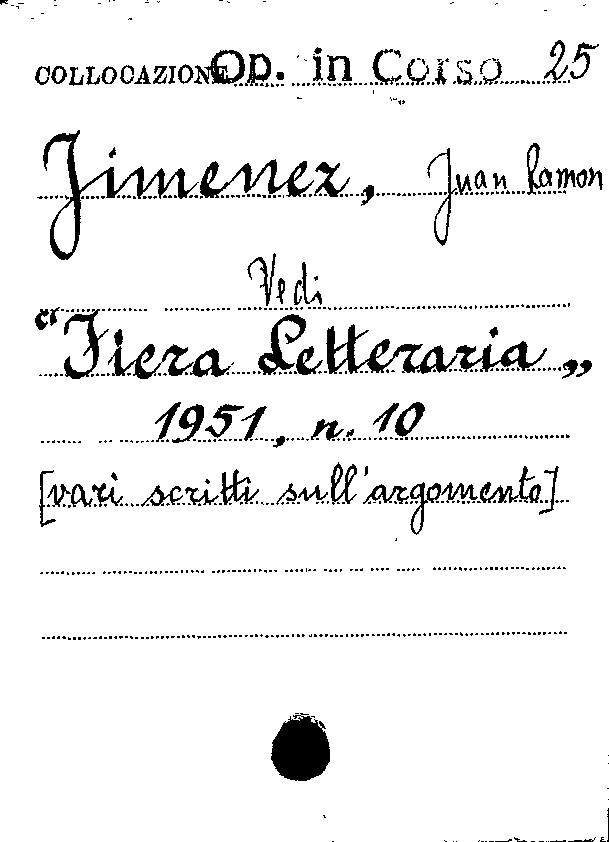 COLLOCAZIONE Op. in Corso 25
Jimenez, Juan Ramon
Vedi
“Fiera Letteraria„
1951, n. 10
[vari scritti sull'argomento]